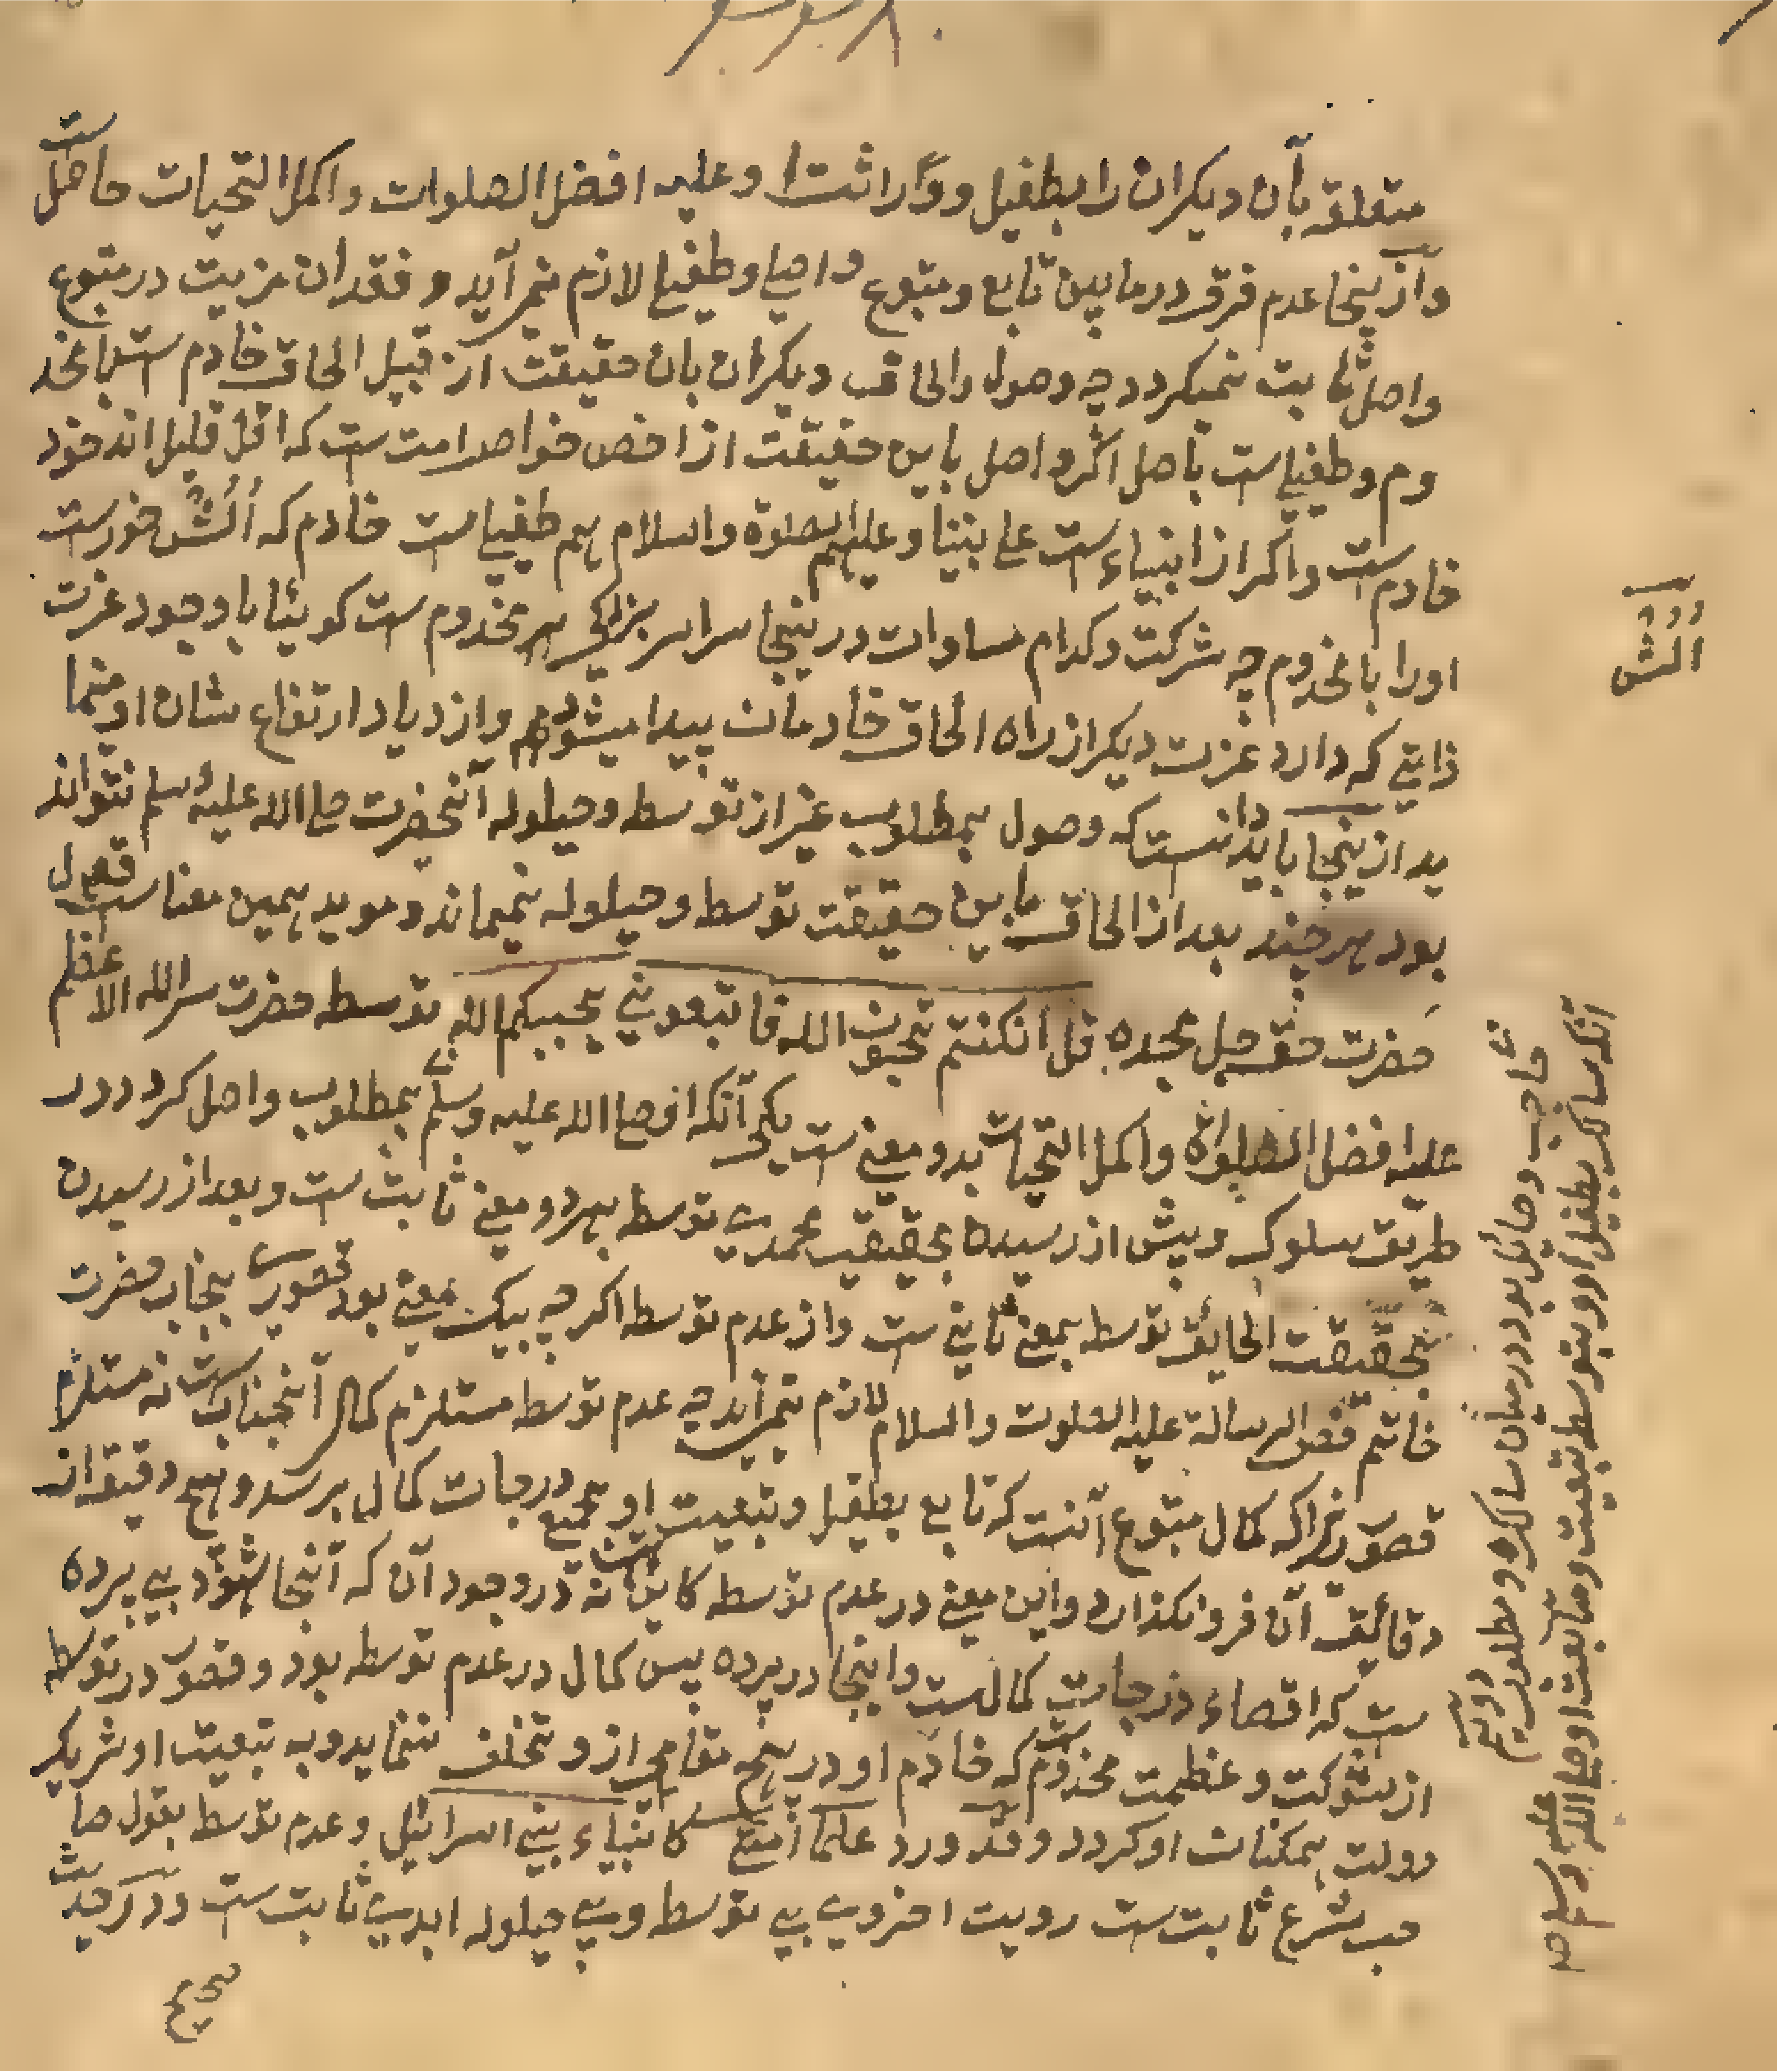 متعلقه بآن دیکران را بطفیل و وراثت او علیه افضل الصلوات واکمل التحیات حاصل ست
وازینجا عدم فرق درمابین تابع ومتبوع واصلی وطفیلی لازم نمی آید و فقدان مزیت در متبوع
واصل ثابت نمیکردد چه وصول والحاق دیکران بان حقیقت از قبیل الحاق خادم ست بامخد
وم وطفیلی ست باصل اکر واصل باین حقیقت از اخص خواص امت ست که اقل قلیل اند خود
خادم ست واکر از انبیاء ست علی نبینا وعلیهم الصلوة والسلام هم طفیلی ست خادم که اُلُشْ خورست
اورا بامخدوم چه شرکت وکدام مساوات درینجا سراسر بزرکی هر مخدوم ست کوئیا باوجود عزت
ذاتی که دارد عزت دیکر از راه الحاق خادمان پیدا میشود وازدیاد ارتفاع شان او مینما
ید ازینجا باید دانست که وصول بمطلوب غیر از توسط وحیلوله آنحضرت صلی الله علیه وسلم نتواند
بود هرچند بعد از الحاق باین حقیقت توسط وحیلوله نمیماند و موید همین معنا ست قول
حضرت حق جل مجده قل انکنتم تحبون الله فاتبعونی یحببکم الله توسط حضرت سرالله الاعظم
علیه افضل الصلوات واکمل التحیات بدو معنی ست یکی آنکه او صلی الله علیه وسلم بمطلوب واصل کردد در
طریق سلوک وپیش از رسیدن بحقیقت محمدی توسط بهر دو معنی ثابت ست وبعد از رسیدن
بحقیقت الحایق توسط بمعنی ثانی ست واز عدم توسط اکرچه بیک معنی بود قصوری بجناب حضرت
خاتم فص الرسالة علیه الصلوت والسلام لازم نمی آید چه عدم توسط مستلزم کمال آنجناب ست نه مستلزم
قصور زیراکه کمال متبوع آنست که تابع بطفیل وتبعیت او بجمیع درجات کمال برسد وهیچ دقیقه از
دقائق آن فرو نکذارد واین معنی در عدم توسط کاین ست نه در وجود آن که آنجا شهود بی پرده
ست که اقصاء درجات کمالست واینجا در پرده پس کمال در عدم توسط بود وقصور در توسط
از شوکت وعظمت مخدوم ست که خادم او در هیچ مقامی از و تخلف ننماید وبه تبعیت او شریک
دولت همکنان او کردد وقد ورد علماء امتی کانبیاء بنی اسرائیل وعدم توسط بقول صا
حب شرع ثابت ست رویت اخروی بی توسط وبی حیلوله ابدی ثابت ست ودر حدیث
صحیح
اُلُشْ
حاجب وحائل بود در میان سالک و مطلوب دویم
آنکه سالک بطفیل او وبتوسط تبعیت ومتابعت او صلی الله علیه وسلم